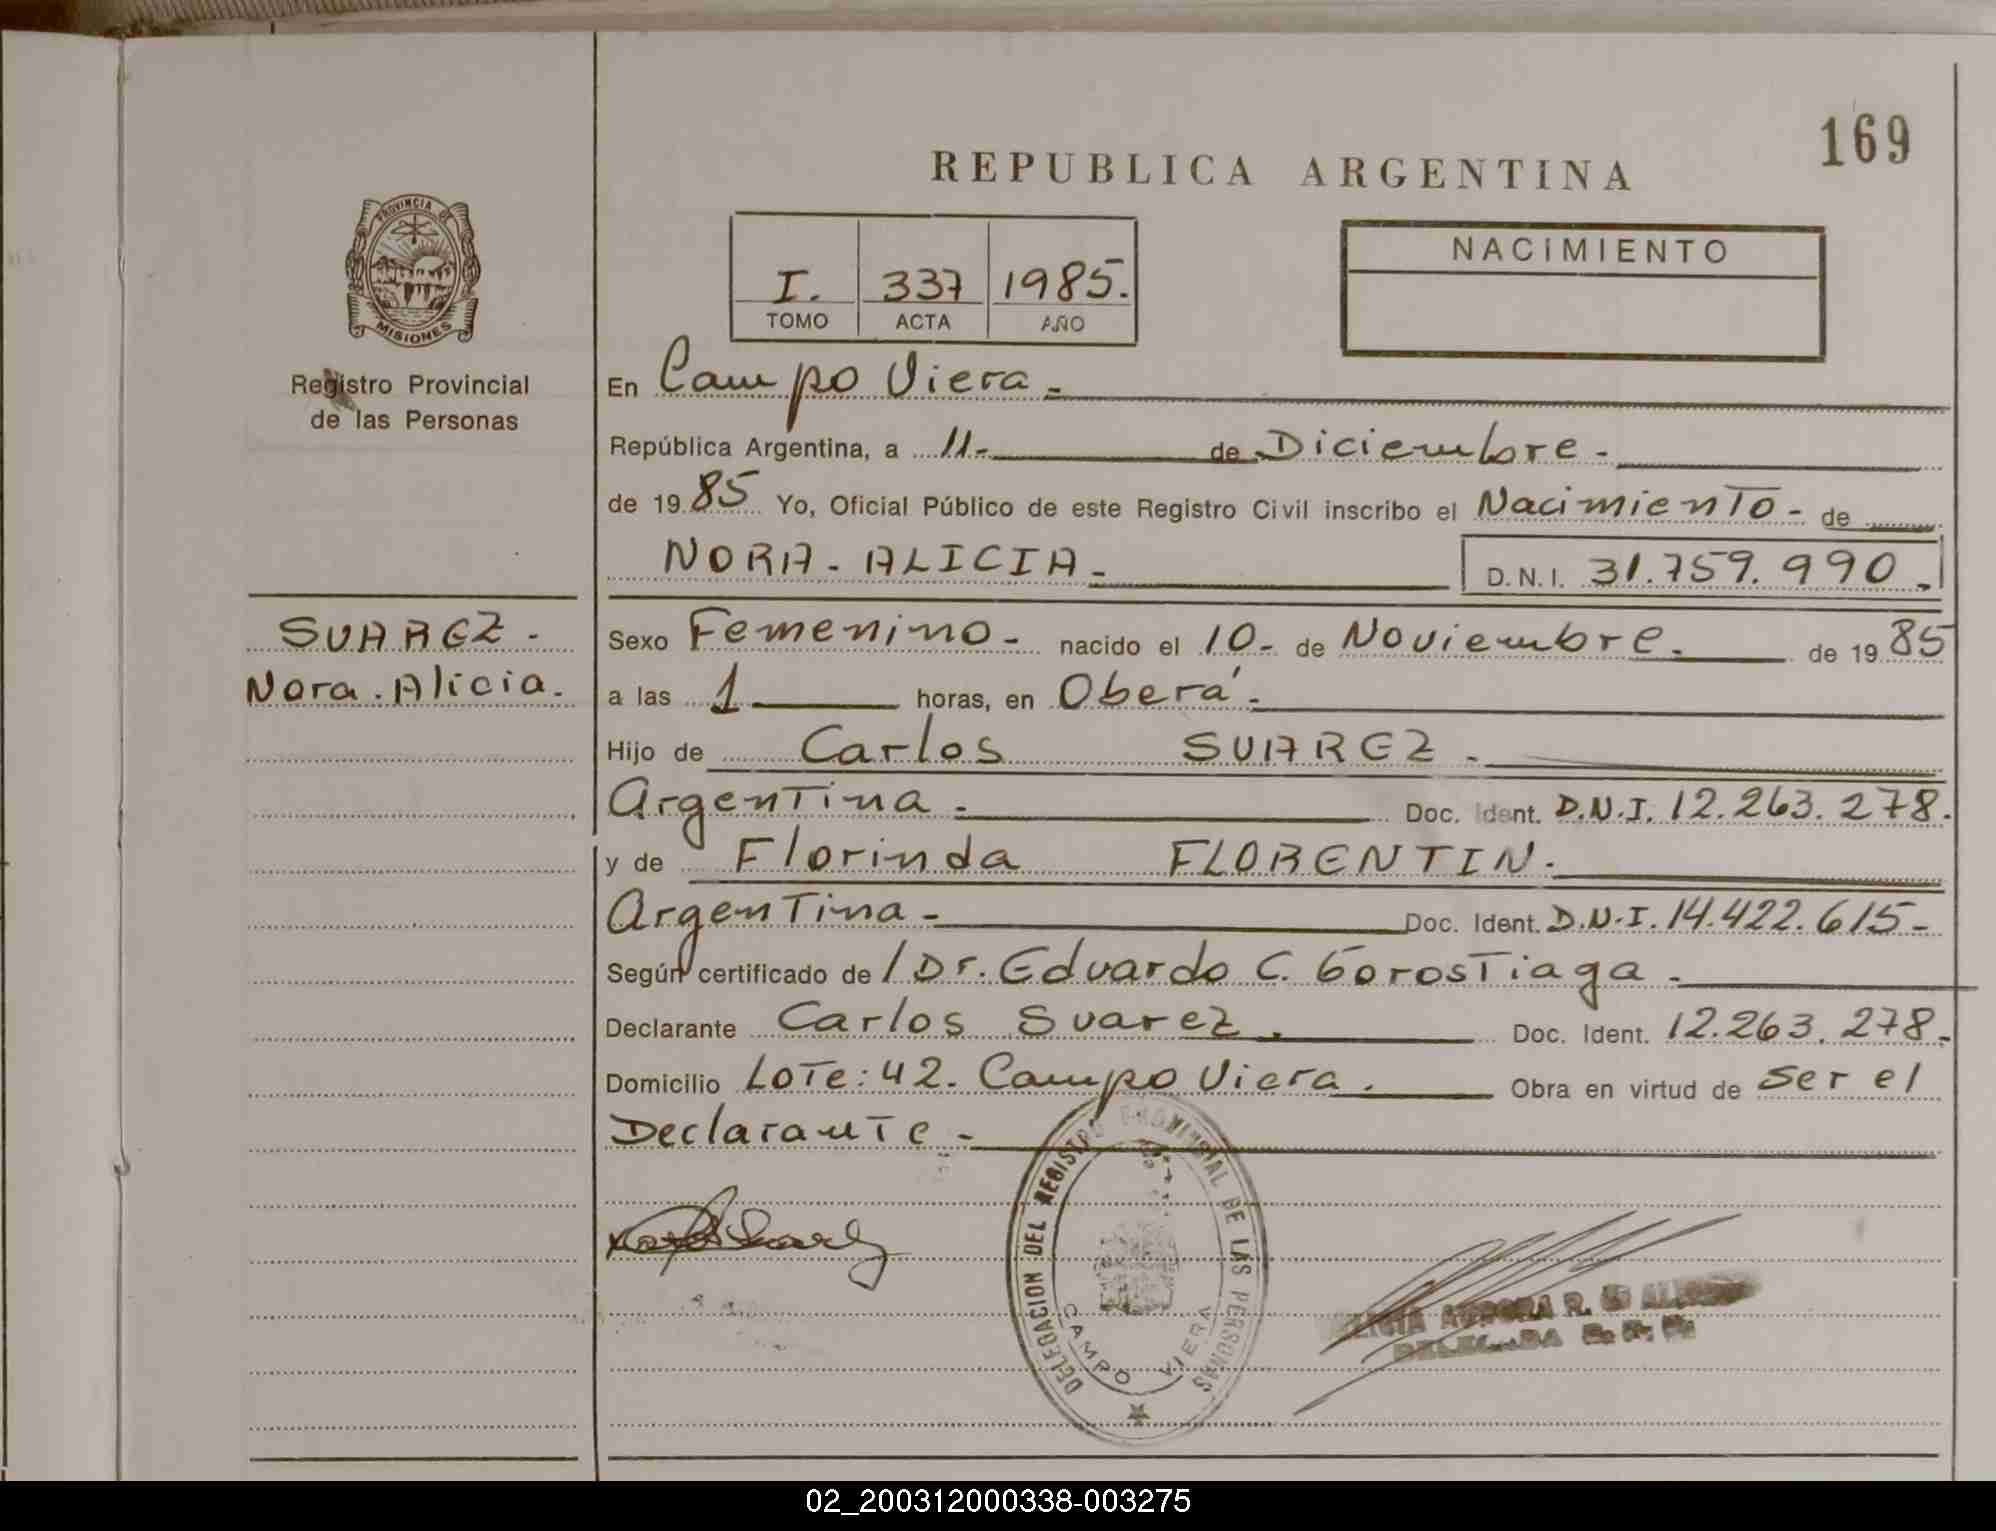 169
REPUBLICA ARGENTINA
PROVINCIA DE
MISIONES
Registro Provincial
de las Personas
I. 337 1985.
TOMO ACTA AÑO
NACIMIENTO
En Campo Viera -
República Argentina, a 11- de Diciembre -
de 1985 Yo, Oficial Público de este Registro Civil inscribo el Nacimiento - de
NORA - ALICIA - D.N.I. 31.759.990.-
SUAREZ -
Nora. Alicia.
Sexo Femenino - nacido el 10- de Noviembre. de 1985
a las 1 horas, en Oberá -
Hijo de Carlos SUAREZ -
Argentina - Doc. Ident. D.N.I. 12.263.278.
y de Florinda FLORENTIN.
Argentina - Doc. Ident. D.N.I. 14.422.615-
Según certificado de / Dr. Eduardo C. Gorostiaga -
Declarante Carlos Suarez. Doc. Ident. 12.263.278.-
Domicilio Lote: 42. Campo Viera. Obra en virtud de ser el
Declarante -
DELEGACION DEL REGISTRO PROVINCIAL DE LAS PERSONAS
CAMPO VIERA
AURORA R. DE
DELEGADA
02_200312000338-003275